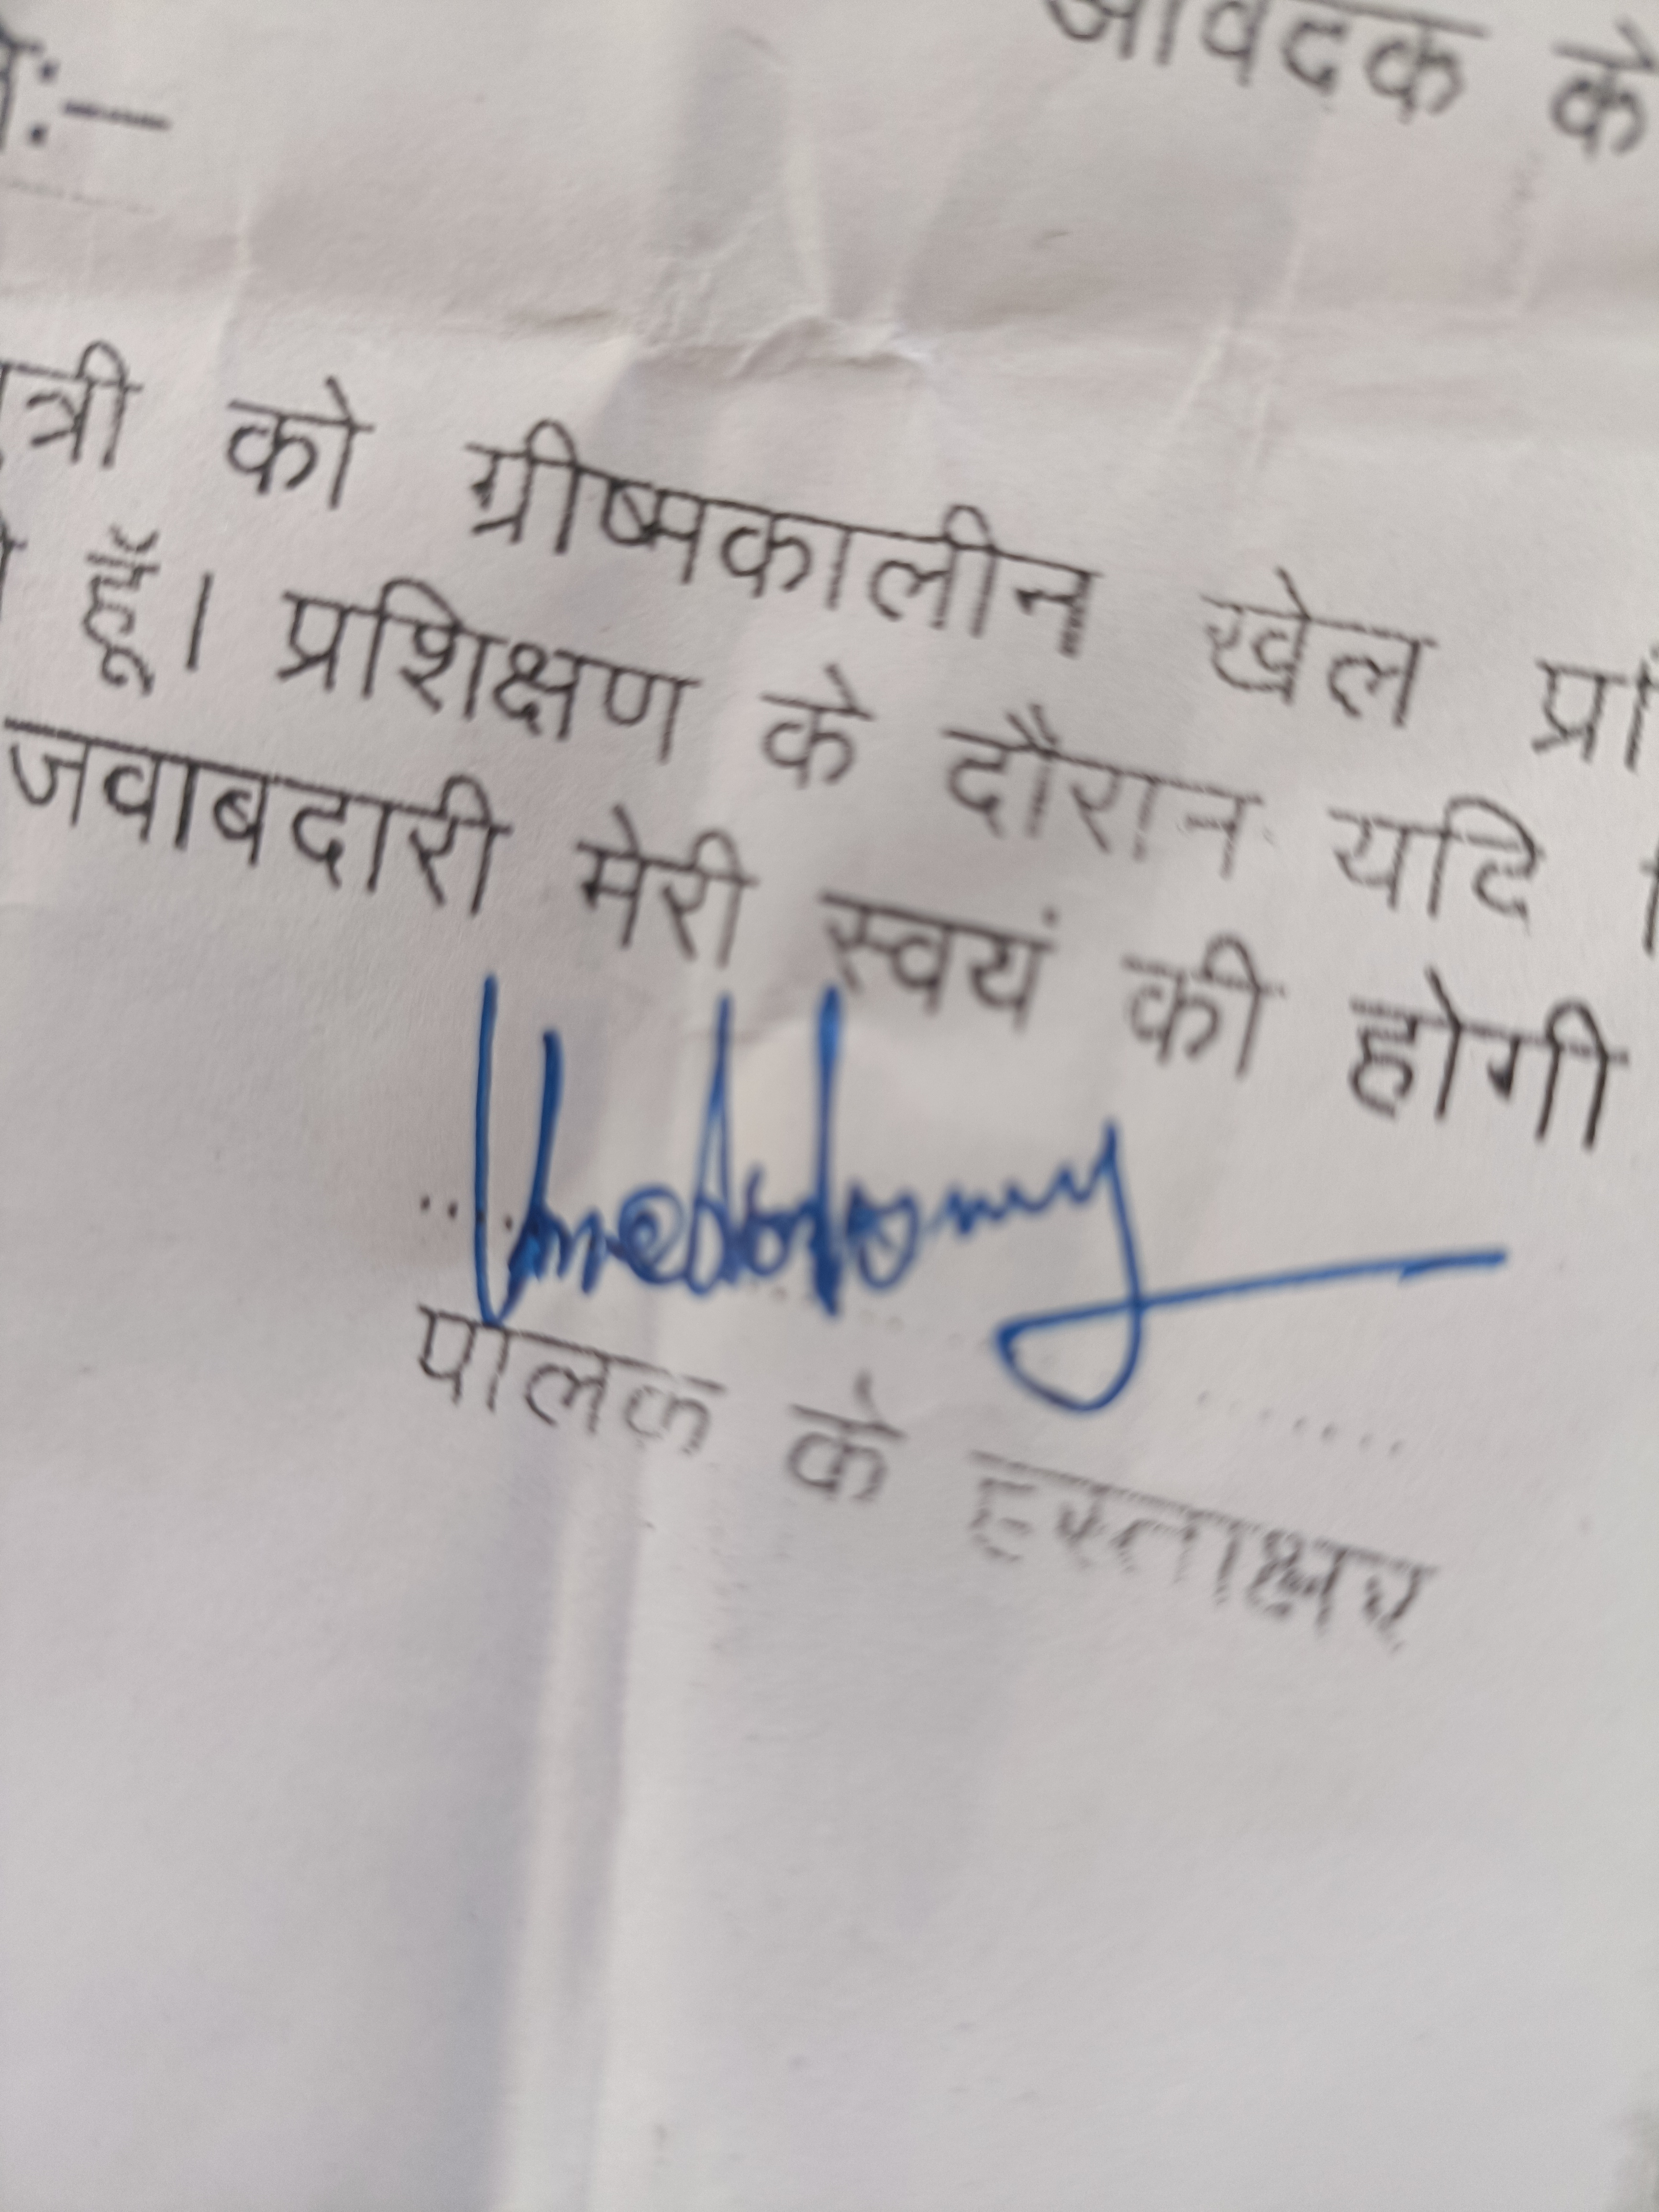 आवेदक के
:–
त्री को ग्रीष्मकालीन खेल
हूँ। प्रशिक्षण के दौरान यदि
जवाबदारी मेरी स्वयं की होगी
पालक के हस्ताक्षर